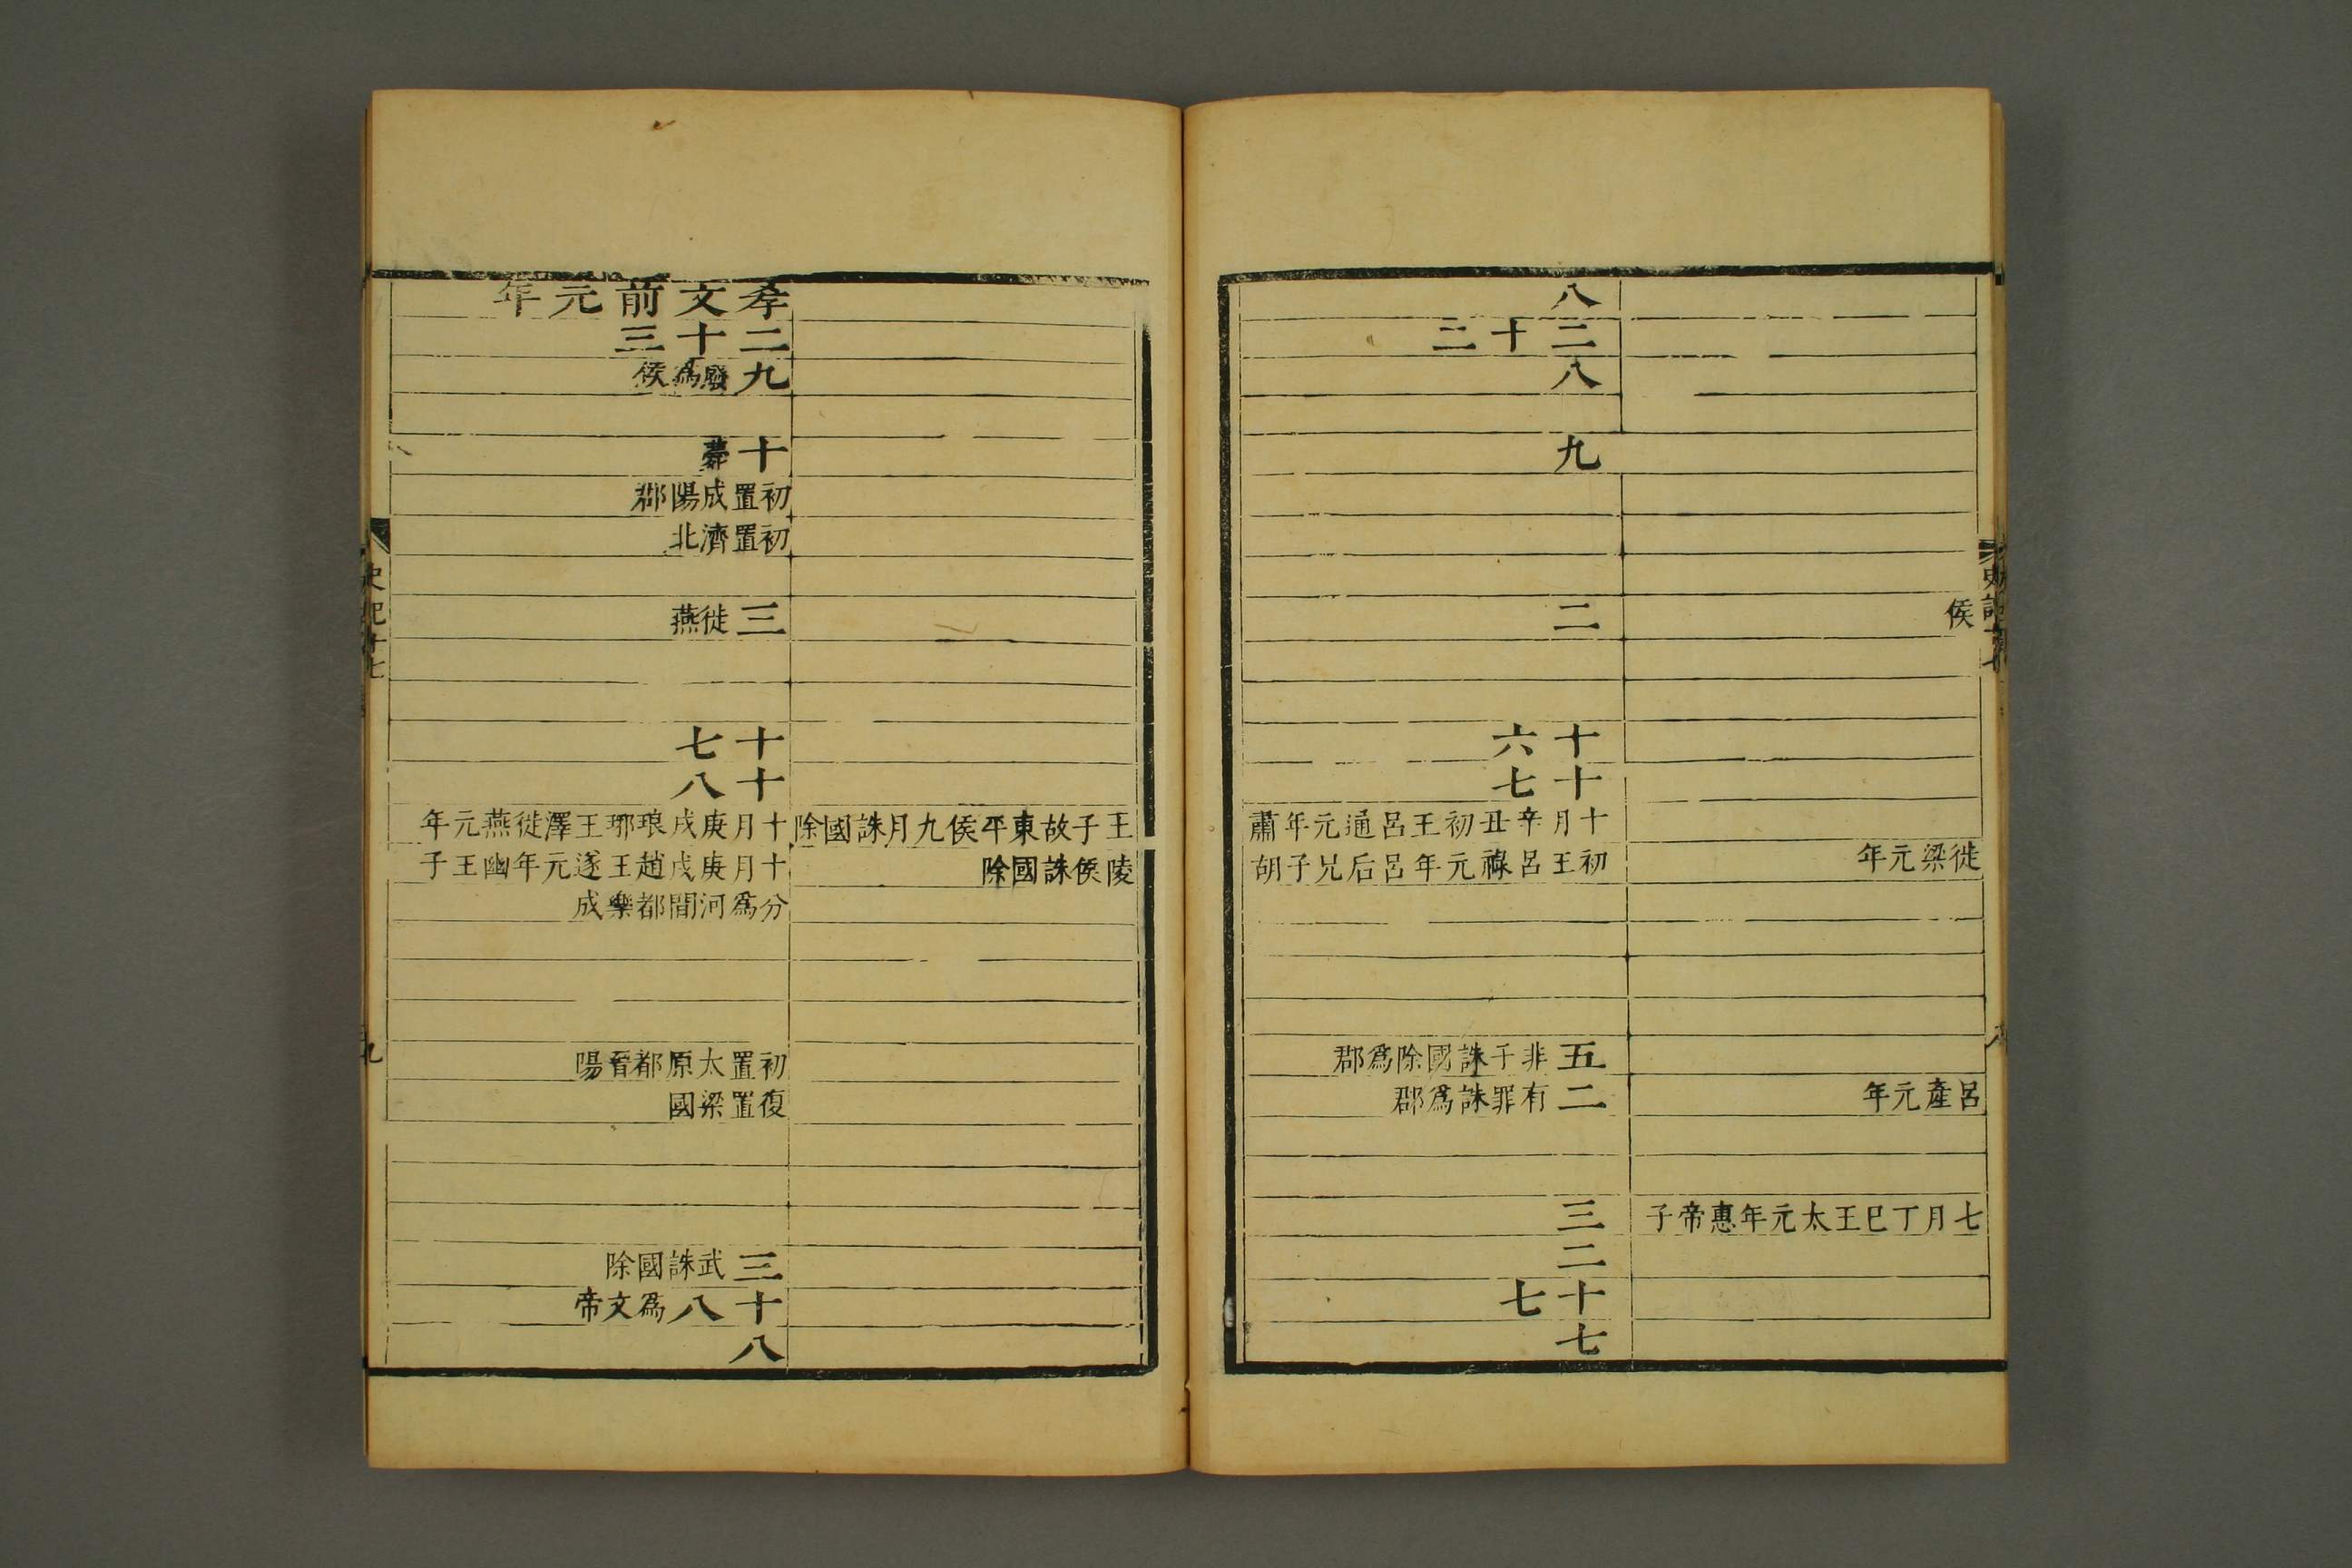 侯
徙梁元年
呂產元年
七月丁巳王太元年惠帝子
八
二十二
八
九
二
十六
十七
十月辛丑初王呂通元年肅
初王呂祿元年呂后兄子胡
五 非子誅國除爲郡
二 有罪誅爲郡
三
二
十七
七
王子故東平侯九月誅國除
陵侯誅國除
孝文前元年
二十三
九 廢爲侯
十 薨
初置成陽郡
初置濟北
三 徙燕
十七
十八
十月庚戌琅琊王澤徙燕元年
十月庚戌趙王遂元年幽王子
分爲河間都樂成
初置太原都晉陽
復置梁國
三 武誅國除
十八 爲文帝
八
史記十七
九